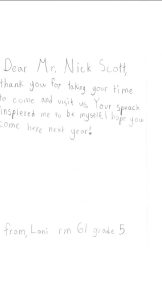 Dear Mr. Nick Scott,
thank you for taking your time
to come and visit us Your speach
inspiered me to be myself I hope you
come here next year!
from, Loni rm 61 grade 5.